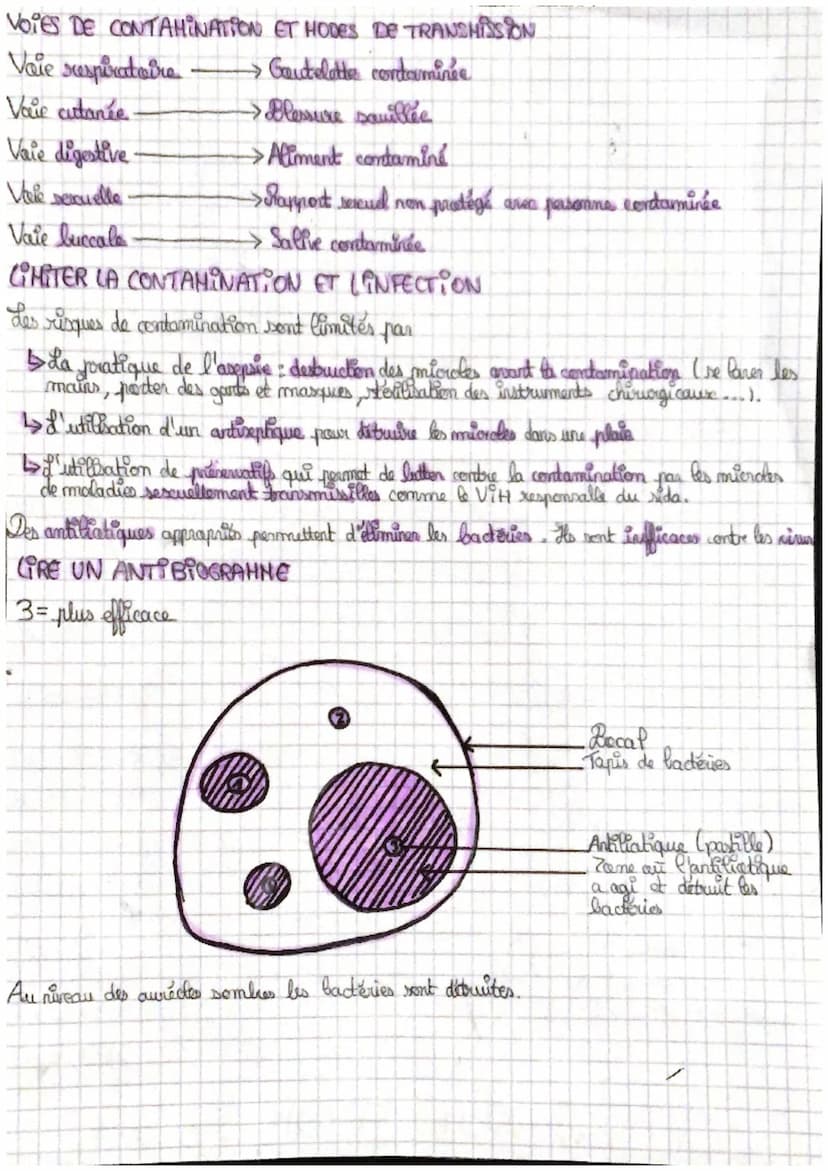 VOIES DE CONTAMINATION ET MODES DE TRANSMISSION
Voie respiratoire → Goutelette contaminée
Voie cutanée → Blessure souillée
Voie digestive → Aliment contaminé
Voie sexuelle → Rapport sexuel non protégé avec personne contaminée
Voie buccale → Salive contaminée
LIMITER LA CONTAMINATION ET L'INFECTION
Les risques de contamination sont limités par
↳ La pratique de l'asepsie : destruction des microbes avant la contamination (se laver les
mains, porter des gants et masques, stérilisation des instruments chirurgicaux ...).
↳ L'utilisation d'un antiseptique pour détruire les microbes dans une plaie
↳ L'utilisation de préservatifs qui permet de lutter contre la contamination par les microbes
de maladies sexuellement transmissibles comme le VIH responsable du sida.
Des antibiotiques appropriés permettent d'éliminer les bactéries. Ils sont inefficaces contre les virus
LIRE UN ANTIBIOGRAMME
3 = plus efficace
2
4
3
Bocal
Tapis de bactéries
Antibiotique (pastille)
Zone où l'antibiotique
a agi et détruit les
bactéries
Au niveau des auréoles sombres les bactéries sont détruites.